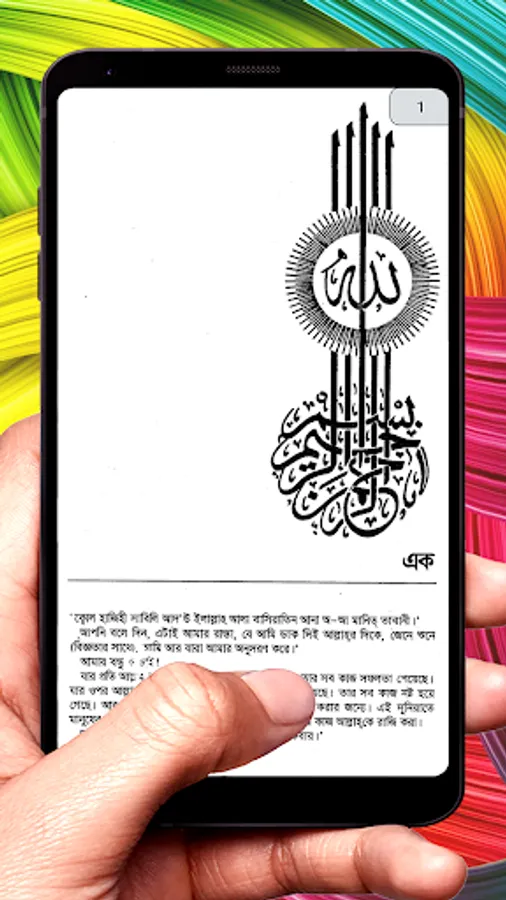 1
الله
بسم الله الرحمن الرحيم
এক
হাজিহী সাবিলি আদ'উ ইলাল্লাহ আলা বাসিরাতিন আনা অ-আ মানিত্ তাবানী।'
'আপনি বলে দিন, এটাই আমার রাস্তা, যে আমি ডাক দিই আল্লাহ্‌র দিকে, জেনে শুনে
(বিজ্ঞতার সাথে), আমি আর যারা আমার অনুসরণ করে।'
আমার বন্ধু ও ভাই!
যার প্রতি সব কাজ সফলতা পেয়েছে।
যার ওপর তার সব কাজ নষ্ট হয়ে
গেছে। করার জন্যে। এই দুনিয়াতে
কাজ আল্লাহ্‌কে রাজি করা।